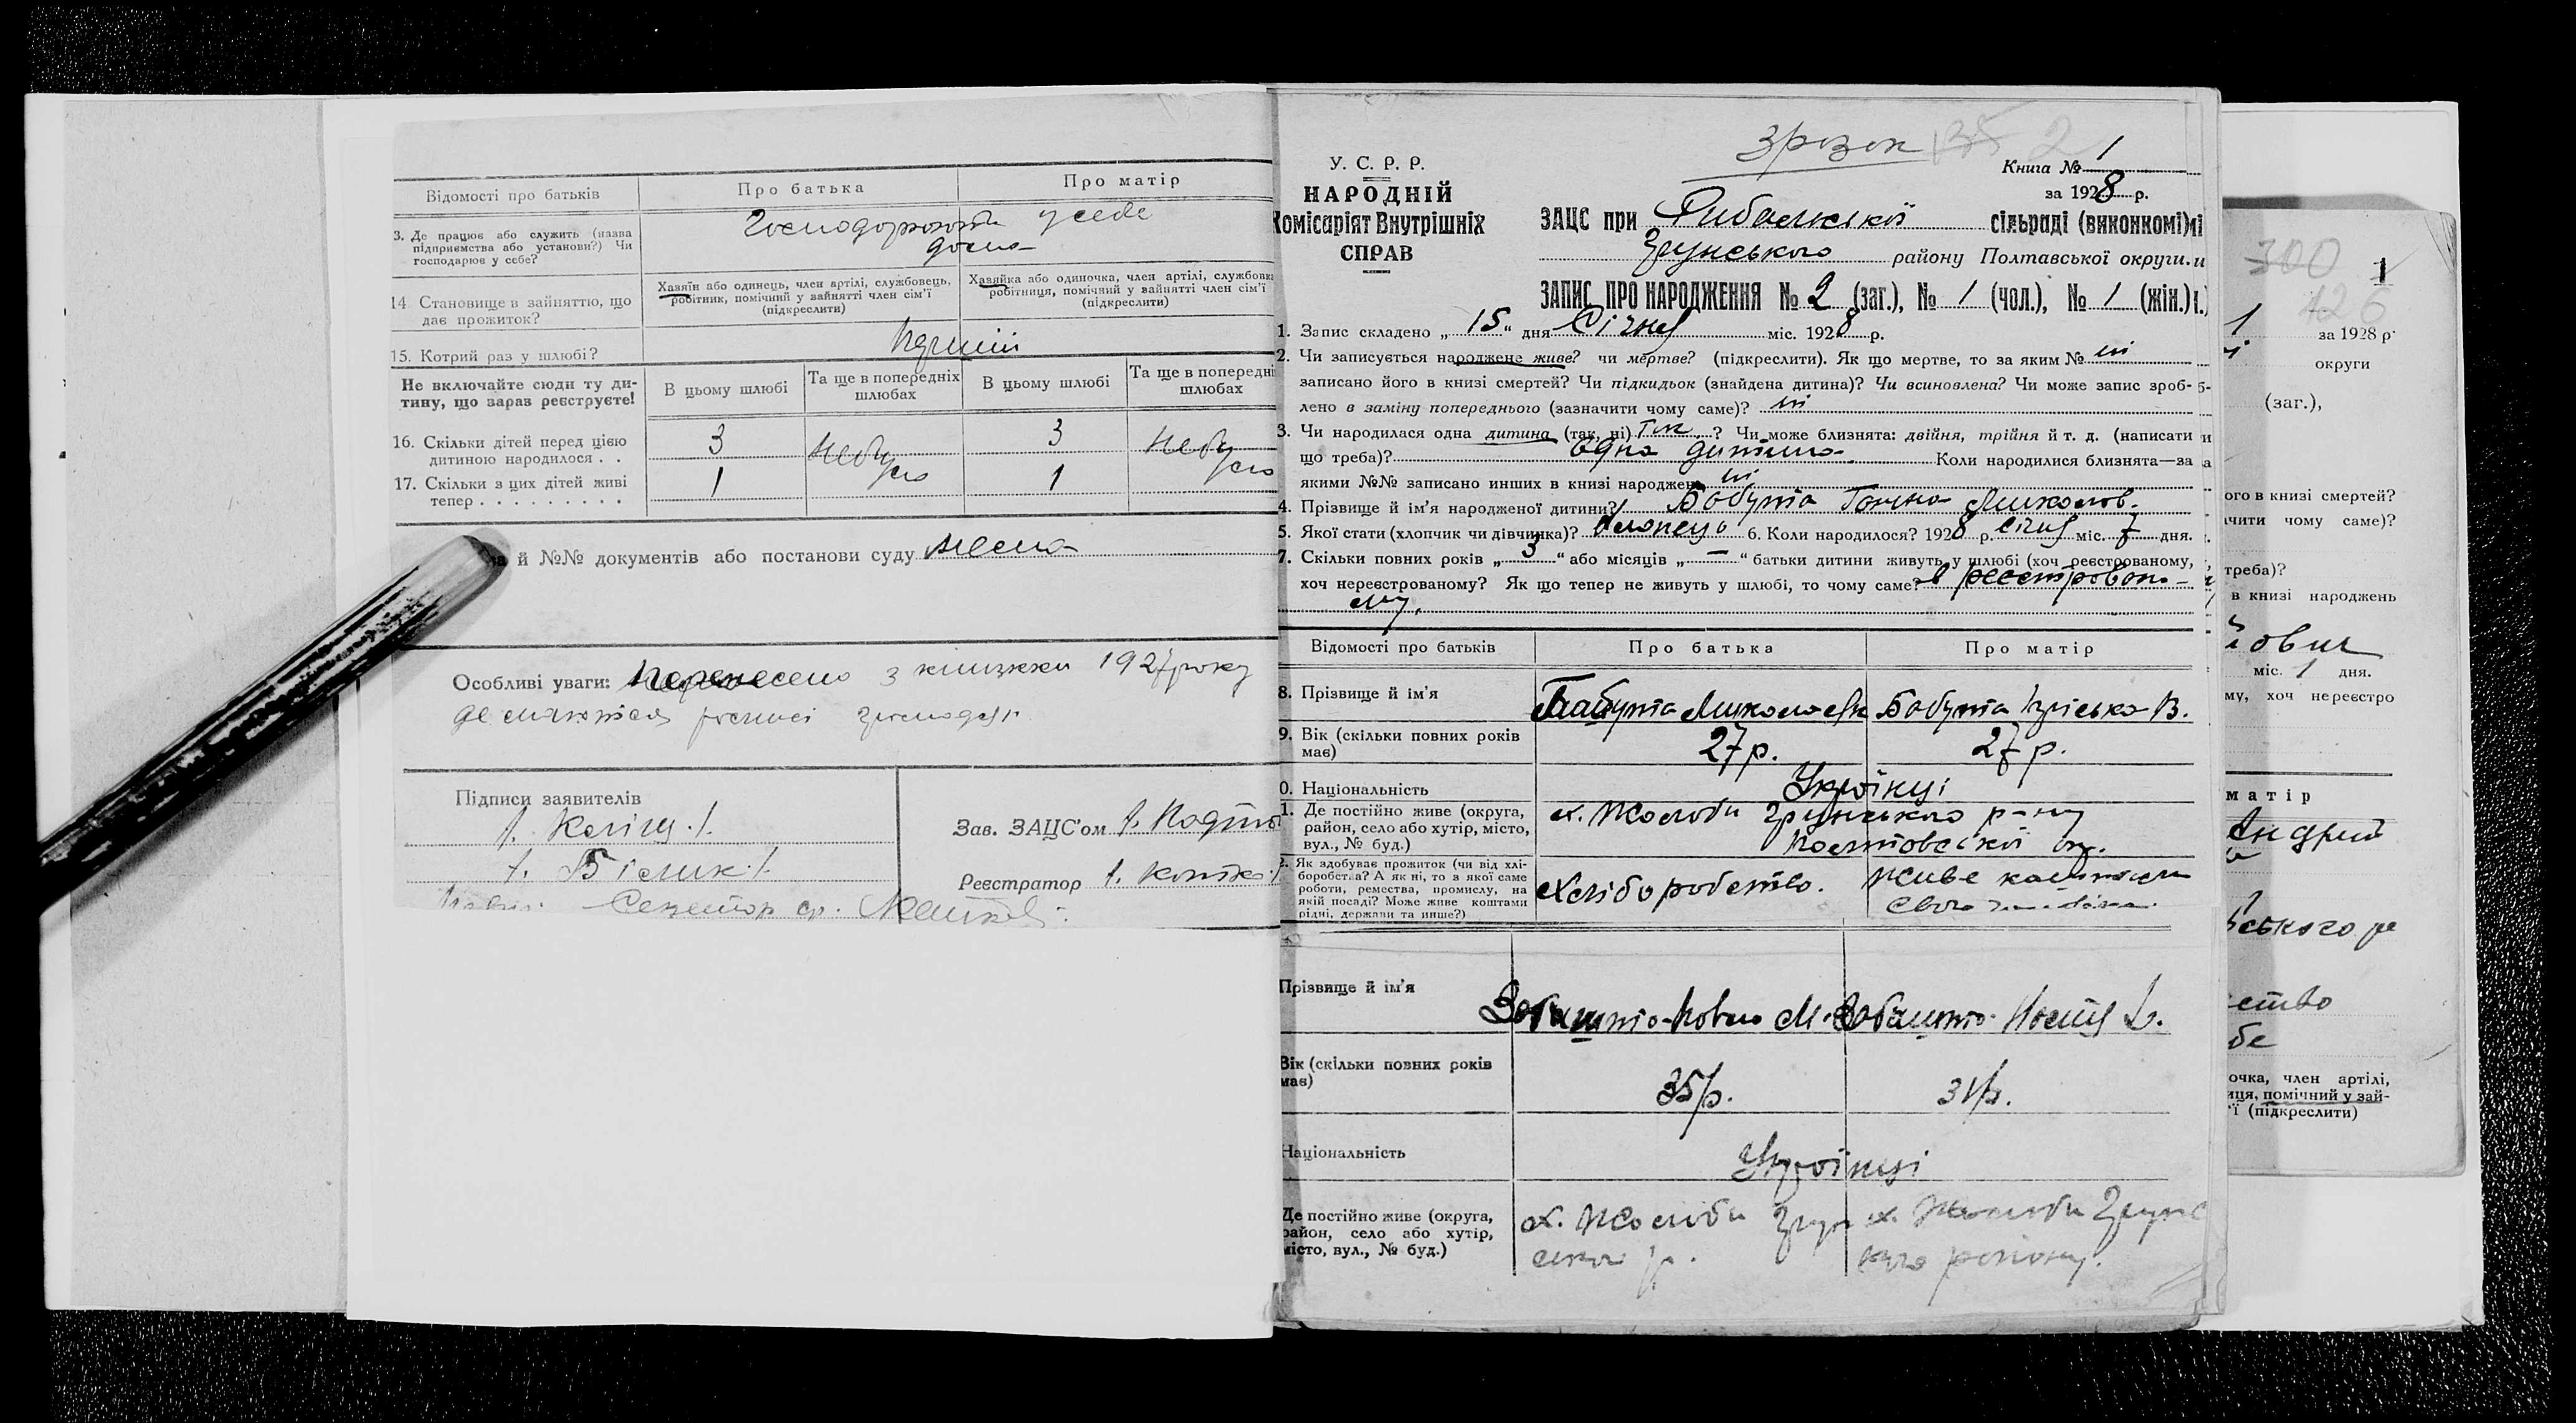 Відомості про батьків
Про батька
Про матір
3. Де працює або служить (назва
підприємства або установи?) Чи
господарює у себе?
у себе
дома
14 Становище в зайняттю, що
дає прожиток?
Хазяїн або одинець, член артілі, службовець,
робітник, помічний у занятті член сім'ї
(підкреслити)
Хазяйка або одиночка, член артілі, службовка
робітниця, помічний у зайнятті член сім'ї
(підкреслити)
15. Котрий раз у шлюбі?
Перший
Не включайте сюди ту ди-
тину, що зараз реєструєте!
В цьому шлюбі
Та ще в попередніх
шлюбах
В цьому шлюбі
Та ще в попередні
шлюбах
16. Скільки дітей перед цією
дитиною народилося . .
3
Небу
3
Небу
17. Скільки з цих дітей живі
тепер . . . . . . . . .
1
ло
1
ло
й №№ документів або постанови суду Нема
Особливі уваги: Перенесено з книжки 1927 року
Підписи заявителів
Зав. ЗАЦС'ом
/. Білик /.
Реєстратор
зразок
135 2
У. С. Р. Р.
НАРОДНІЙ
Комісаріят Внутрішніх
СПРАВ
Книга № 1
за 1928 р.
ЗАЦС при Рибальській сільраді (виконкомі)
Грунського району Полтавської округи.
ЗАПИС ПРО НАРОДЖЕННЯ № 2 (заг.), № 1 (чол.), № 1 (жін.)
1. Запис складено „ 15 " дня Січня міс. 1928 р.
2. Чи записується народжене живе? чи мертве? (підкреслити). Як що мертве, то за яким № ні
записано його в книзі смертей? Чи підкидьок (знайдена дитина)? Чи всиновлена? Чи може запис зроб-
лено в заміну попереднього (зазначити чому саме)? ні
3. Чи народилася одна дитина (так, ні) Так ? Чи може близнята: двійня, трійня й т. д. (написати
що треба)? Одна дитина Коли народилися близнята—за
якими №№ записано инших в книзі народжень ні
4. Прізвище й ім'я народженої дитини? Бабута Миколов.
5. Якої стати (хлопчик чи дівчинка)? 6. Коли народилося? 1928 р. січня міс. 7 дня.
7. Скільки повних років „ 3 " або місяців „ — " батьки дитини живуть у шлюбі (хоч реєстрованому,
хоч нереєстрованому? Як що тепер не живуть у шлюбі, то чому саме? в реєстрована-
му.
Відомості про батьків
Про батька
Про матір
8. Прізвище й ім'я
Бабута Микола
Бабута В.
9. Вік (скільки повних років
має)
27 р.
27 р.
0. Національність
Українці
1. Де постійно живе (округа,
район, село або хутір, місто,
вул., № буд.)
х. Жолоби Грунського р-ну
Полтавської окр.
2. Як здобуває прожиток (чи від хлі-
боробства? А як ні, то з якої саме
роботи, ремества, промислу, на
якій посаді? Може живе коштами
рідні, держави та инше?)
Хліборобство.
Живе коштом
свого
Прізвище й ім'я
Вік (скільки повних років
має)
35 р.
31 р.
Національність
Українці
Де постійно живе (округа,
район, село або хутір,
місто, вул., № буд.)
х. Жолоби Грун
ського р.
х. Жолоби Грунс
кого району.
300
1
126
1
за 1928 р.
округи
(заг.),
ого в книзі смертей?
ачити чому саме)?
треба)?
в книзі народжень
ович
міс. 1 дня.
му, хоч нереєстро
матір
ського
ство
бе
очка, член артілі,
иця, помічний у зай-
'ї (підкреслити)